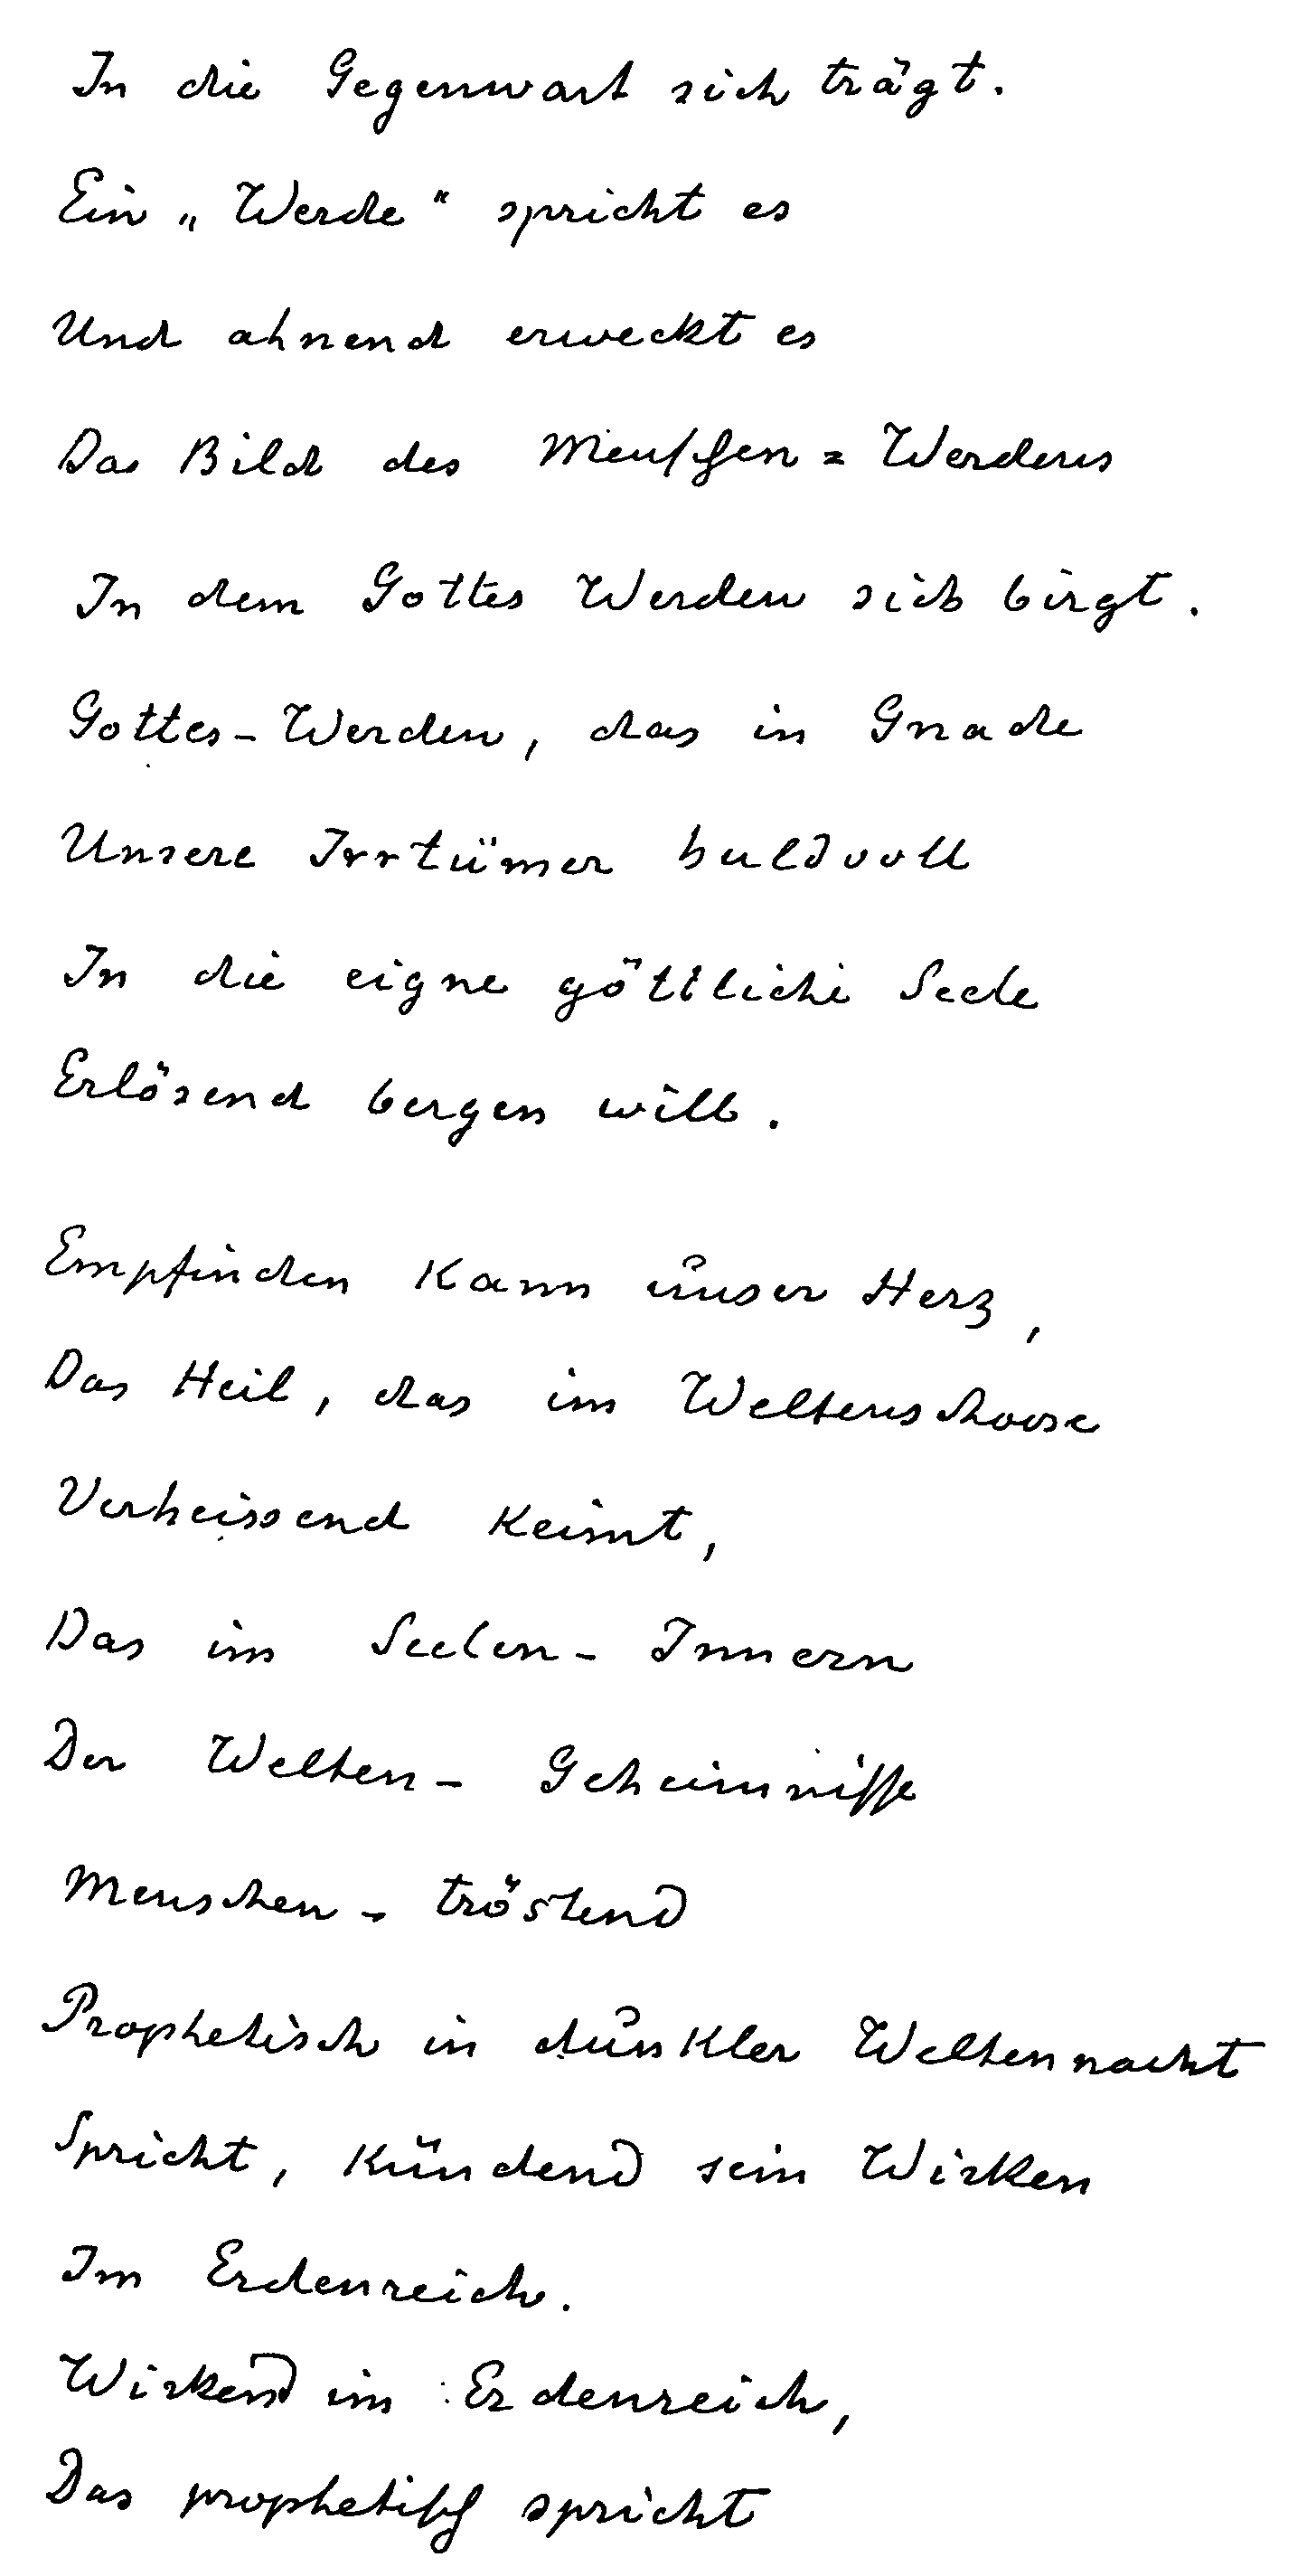 In die Gegenwart sich trägt.
Ein „Werde“ spricht es
Und ahnend erweckt es
Das Bild des Menschen=Werdens
In dem Gottes Werden sich birgt.
Gottes-Werden, das in Gnade
Unsere Irrtümer huldvoll
In die eigne göttliche Seele
Erlösend bergen will.
Empfinden kann unser Herz,
Das Heil, das im Weltenschoose
Verheissend keimt,
Das im Seelen-Innern
Der Welten-Geheimnisse
Menschen-tröstend
Prophetisch in dunkler Weltennacht
Spricht, kündend sein Wirken
Im Erdenreich.
Wirkend im Erdenreich,
Das prophetisch spricht